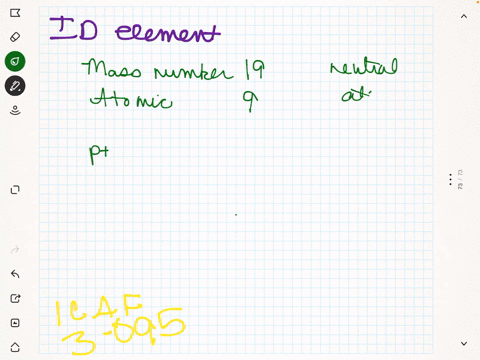 ID element
Mass number 19 neutral
Atomic 9 at.
p+